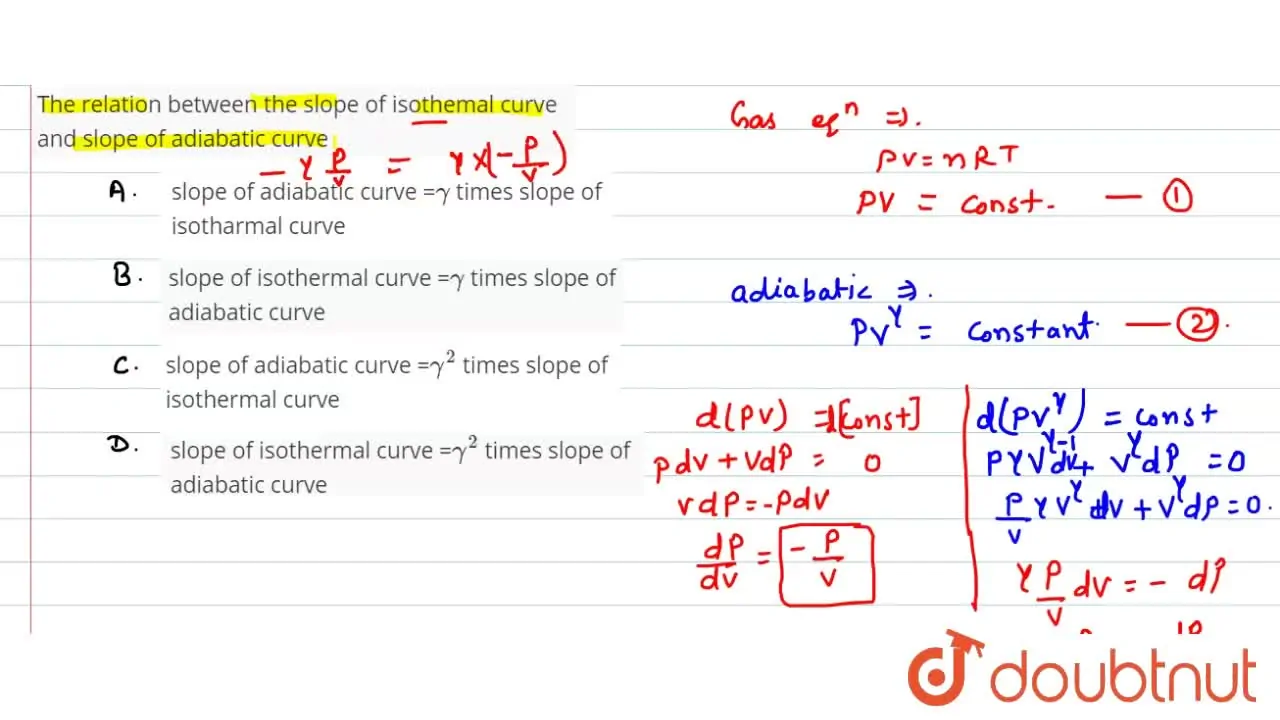 The relation between the slope of isothemal curve
and slope of adiabatic curve
- γ P/V = γ x (- P/V)
A. slope of adiabatic curve =γ times slope of
isotharmal curve
B. slope of isothermal curve =γ times slope of
adiabatic curve
C. slope of adiabatic curve =γ² times slope of
isothermal curve
D. slope of isothermal curve =γ² times slope of
adiabatic curve
Gas eqⁿ ⇒.
PV = nRT
PV = const. — ①
adiabatic ⇒.
PV^γ = constant. — ②.
d(PV) = d[const]
pdv + vdP = 0
vdP = -Pdv
dP/dv = - P/V
d(PV^γ) = const
PγV^γ-1 dv + V^γ dP = 0
P/V γV^γ dv + V^γ dP = 0.
γ P/V dv = - dP
dP
doubtnut